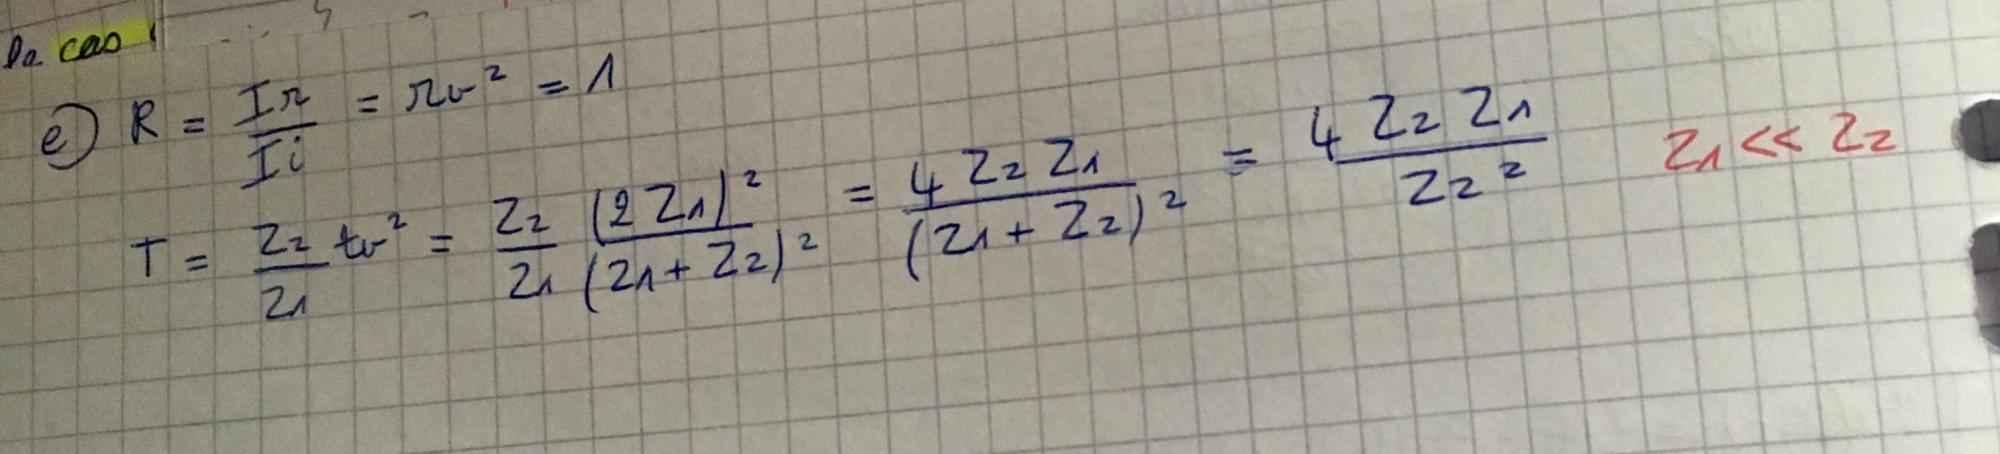 le cas
e) R = Ir/Ii = rv² = 1
T = Z2/Z1 tv² = Z2/Z1 (2Z1)²/(Z1+Z2)² = 4 Z2 Z1/(Z1+Z2)² = 4 Z2 Z1/Z2² Z1 << Z2